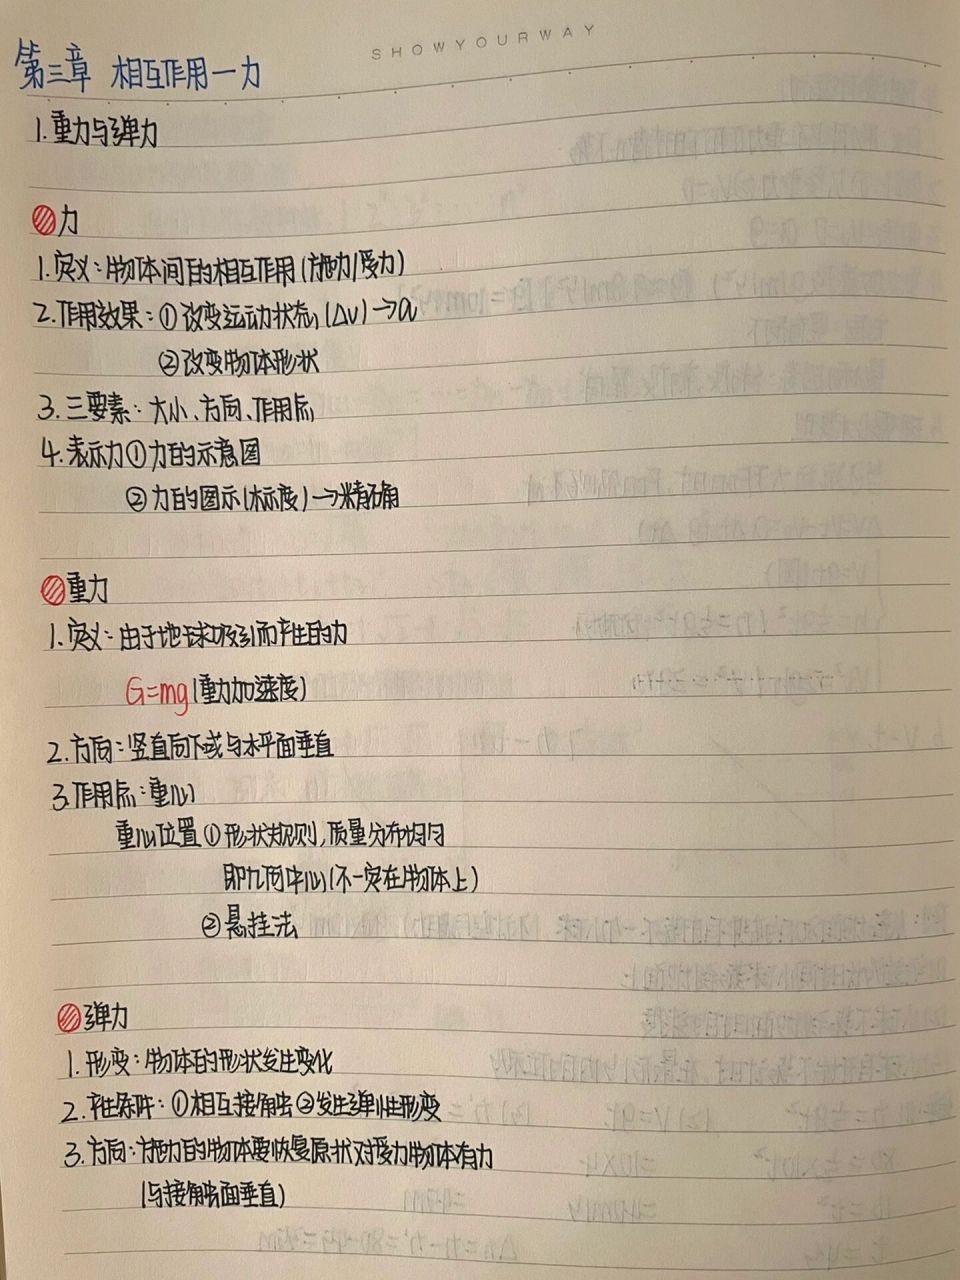 SHOWYOURWAY
第三章 相互作用一力
1.重力与弹力
力
1.定义:物体间的相互作用(施力/受力)
2.作用效果:①改变运动状态(Δv)→a
②改变物体形状
3.三要素:大小、方向、作用点
4.表示力①力的示意图
②力的图示(标度)→精确
重力
1.定义:由于地球吸引而产生的力
G=mg(重力加速度)
2.方向:竖直向下或与水平面垂直
3.作用点:重心
重心位置①形状规则,质量分布均匀
即几何中心(不一定在物体上)
②悬挂法
弹力
1.形变:物体的形状发生变化
2.产生条件:①相互接触②发生弹性形变
3.方向:施力的物体要恢复原状对受力物体有力
(与接触面垂直)